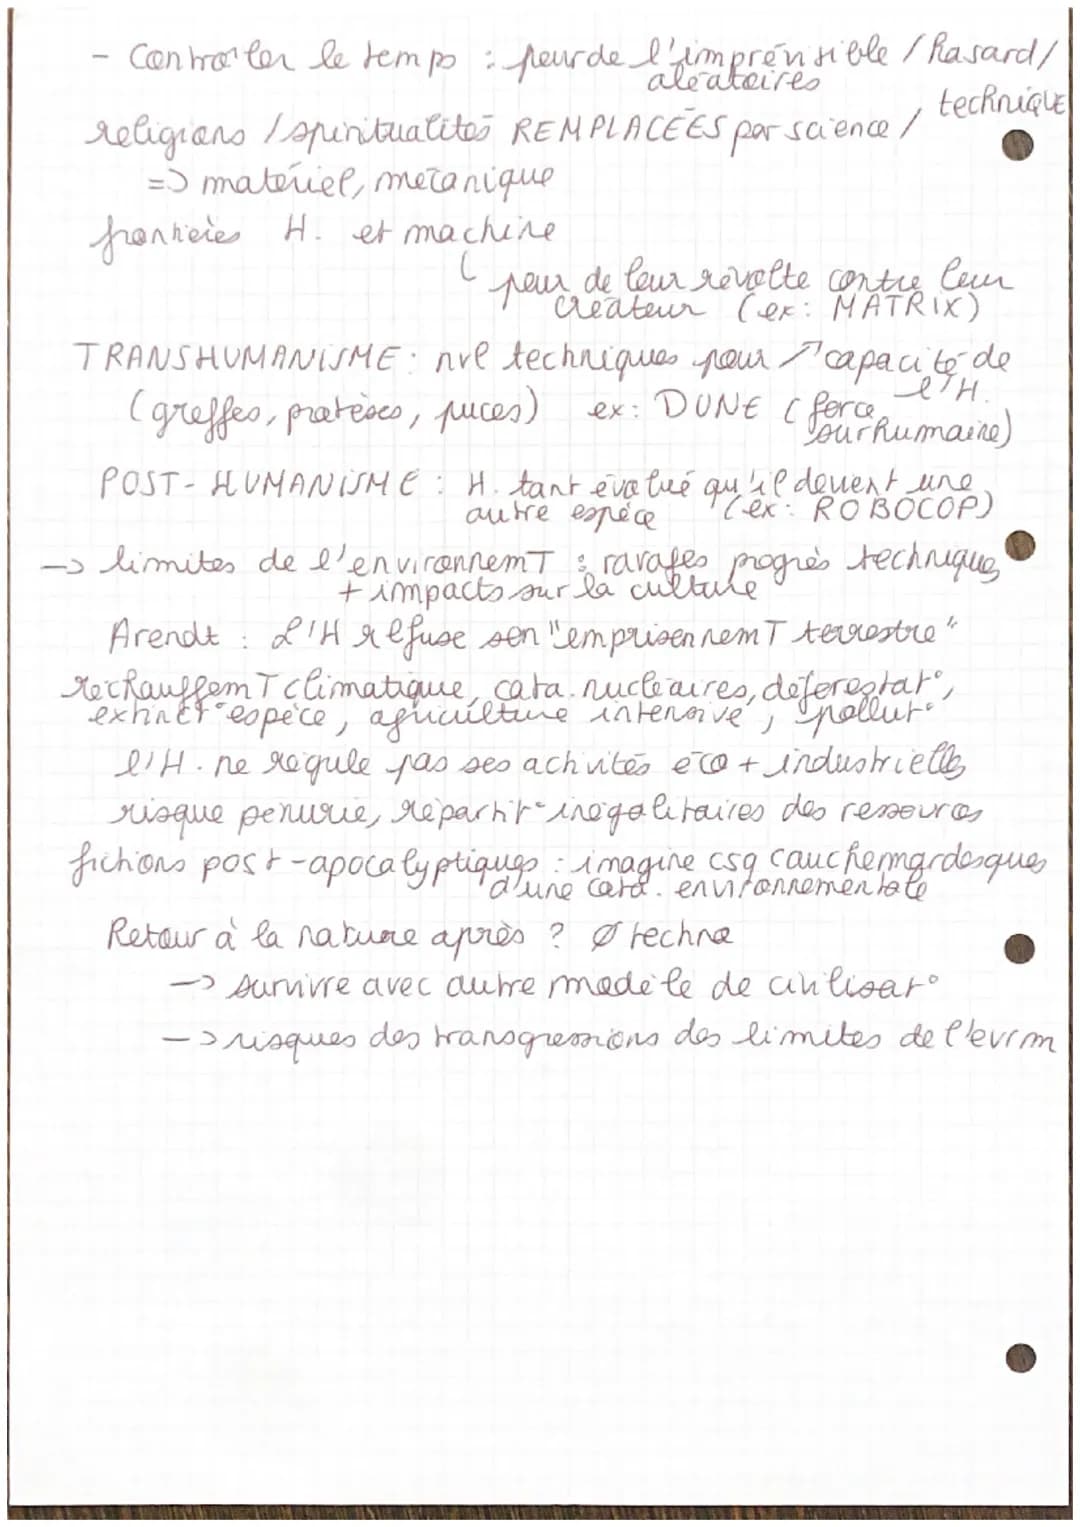 - Contrôler le temps : peur de l'imprévisible / hasard /
aléatoires
religions / spiritualités REMPLACÉES par science / technique
=> matériel, mécanique
frontières H. et machine
↳ peur de leur révolte contre leur
créateur (ex: MATRIX)
TRANSHUMANISME : nvl techniques pour ↗ capacité de
l'H.
(greffes, protèses, puces) ex: DUNE (force
surhumaine)
POST-HUMANISME : H. tant évolué qu'il devient une
autre espèce (ex: ROBOCOP)
-> limites de l'environnemT : ravages progrès techniques
+ impacts sur la culture
Arendt : L'H refuse son "emprisonnemT terrestre"
réchauffemT climatique, cata. nucléaires, déforestat°,
extinct° espèce, agriculture intensive, pollut°
l'H. ne régule pas ses activités éco + industrielles
risque pénurie, répartit° inégalitaires des ressources
fictions post-apocalyptiques : imagine csq cauchemardesques
d'une cata. environnementale
Retour à la nature après ? Ø techno
-> survivre avec autre modèle de civilisat°
-> risques des transgressions des limites de l'evrm